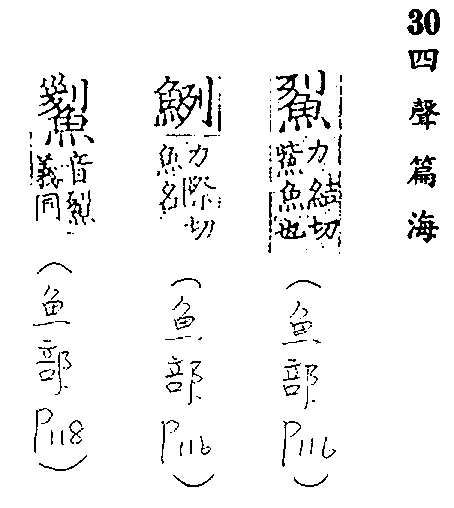 30 四聲篇海
力結切
紫魚也
(魚部 P116)
鮤
力際切
魚名
(魚部 P116)
音裂
義同
(魚部 P118)